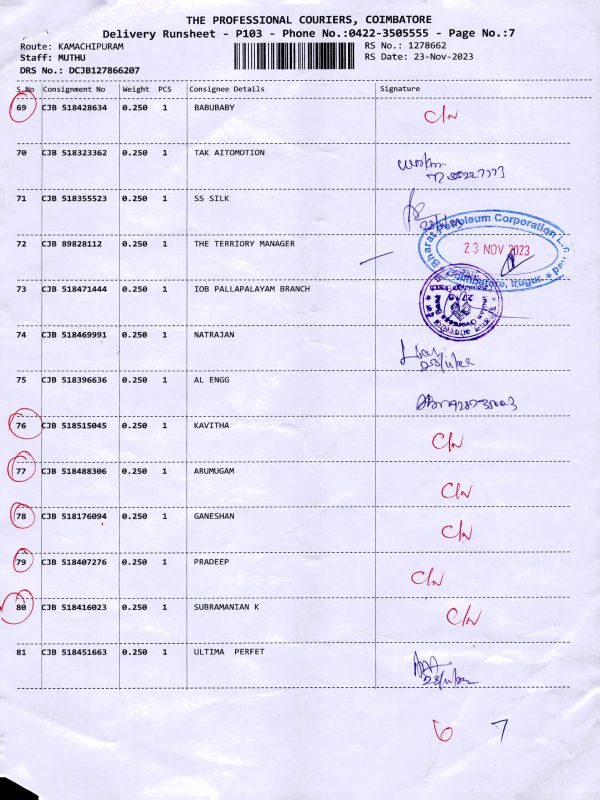 THE PROFESSIONAL COURIERS, COIMBATORE
Delivery Runsheet - P103 - Phone No.:0422-3505555 - Page No.:7
Route: KAMACHIPURAM RS No.: 1278662
Staff: MUTHU RS Date: 23-Nov-2023
DRS No.: DCJB127866207
S.No Consignment No Weight PCS Consignee Details Signature
69 CJB 518428634 0.250 1 BABUBABY C/N
70 CJB 518323362 0.250 1 TAK AITOMOTION
71 CJB 518355523 0.250 1 SS SILK
72 CJB 89828112 0.250 1 THE TERRIORY MANAGER
Bharat Petroleum Corporation
23 NOV 2023
Coimbatore, Irugur.
73 CJB 518471444 0.250 1 IOB PALLAPALAYAM BRANCH
74 CJB 518469991 0.250 1 NATRAJAN
75 CJB 518396636 0.250 1 AL ENGG
76 CJB 518515045 0.250 1 KAVITHA C/N
77 CJB 518488306 0.250 1 ARUMUGAM C/N
78 CJB 518176094 0.250 1 GANESHAN C/N
79 CJB 518407276 0.250 1 PRADEEP C/N
80 CJB 518416023 0.250 1 SUBRAMANIAN K C/N
81 CJB 518451663 0.250 1 ULTIMA PERFET
6 7